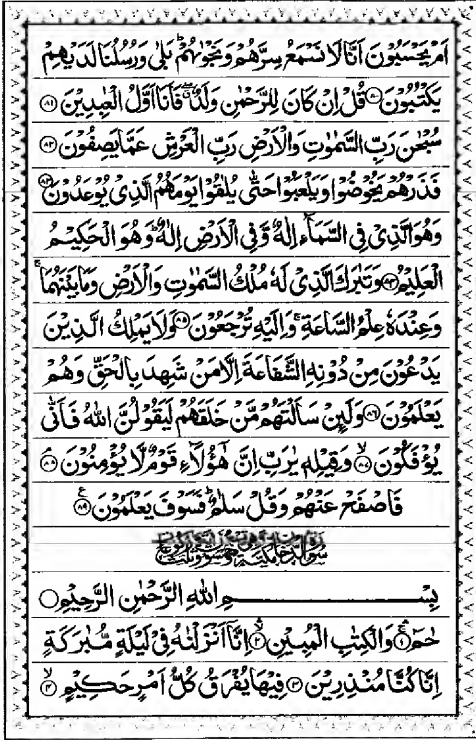 اَمْ يَحْسَبُوْنَ اَنَّا لَا نَسْمَعُ سِرَّهُمْ وَنَجْوٰىهُمْ ؕ بَلٰى وَرُسُلُنَا لَدَيْهِمْ
يَكْتُبُوْنَ ﴿۸۰﴾ قُلْ اِنْ كَانَ لِلرَّحْمٰنِ وَلَدٌ ۖ فَاَنَا اَوَّلُ الْعٰبِدِيْنَ ﴿۸۱﴾
سُبْحٰنَ رَبِّ السَّمٰوٰتِ وَالْاَرْضِ رَبِّ الْعَرْشِ عَمَّا يَصِفُوْنَ ﴿۸۲﴾
فَذَرْهُمْ يَخُوْضُوْا وَيَلْعَبُوْا حَتّٰى يُلٰقُوْا يَوْمَهُمُ الَّذِىْ يُوْعَدُوْنَ ﴿۸۳﴾
وَهُوَ الَّذِىْ فِى السَّمَآءِ اِلٰهٌ وَّفِى الْاَرْضِ اِلٰهٌ ؕ وَهُوَ الْحَكِيْمُ
الْعَلِيْمُ ﴿۸۴﴾ وَتَبٰرَكَ الَّذِىْ لَهٗ مُلْكُ السَّمٰوٰتِ وَالْاَرْضِ وَمَا بَيْنَهُمَا ۚ
وَعِنْدَهٗ عِلْمُ السَّاعَةِ ۚ وَاِلَيْهِ تُرْجَعُوْنَ ﴿۸۵﴾ وَلَا يَمْلِكُ الَّذِيْنَ
يَدْعُوْنَ مِنْ دُوْنِهِ الشَّفَاعَةَ اِلَّا مَنْ شَهِدَ بِالْحَقِّ وَهُمْ
يَعْلَمُوْنَ ﴿۸۶﴾ وَلَئِنْ سَاَلْتَهُمْ مَّنْ خَلَقَهُمْ لَيَقُوْلُنَّ اللّٰهُ فَاَنّٰى
يُؤْفَكُوْنَ ﴿۸۷﴾ وَقِيْلِهٖ يٰرَبِّ اِنَّ هٰٓؤُلَآءِ قَوْمٌ لَّا يُؤْمِنُوْنَ ﴿۸۸﴾
فَاصْفَحْ عَنْهُمْ وَقُلْ سَلٰمٌ ؕ فَسَوْفَ يَعْلَمُوْنَ ﴿۸۹﴾
بِسْمِ اللّٰهِ الرَّحْمٰنِ الرَّحِيْمِ
حٰمٓ ﴿۱﴾ وَالْكِتٰبِ الْمُبِيْنِ ﴿۲﴾ اِنَّآ اَنْزَلْنٰهُ فِىْ لَيْلَةٍ مُّبٰرَكَةٍ
اِنَّا كُنَّا مُنْذِرِيْنَ ﴿۳﴾ فِيْهَا يُفْرَقُ كُلُّ اَمْرٍ حَكِيْمٍ ﴿۴﴾